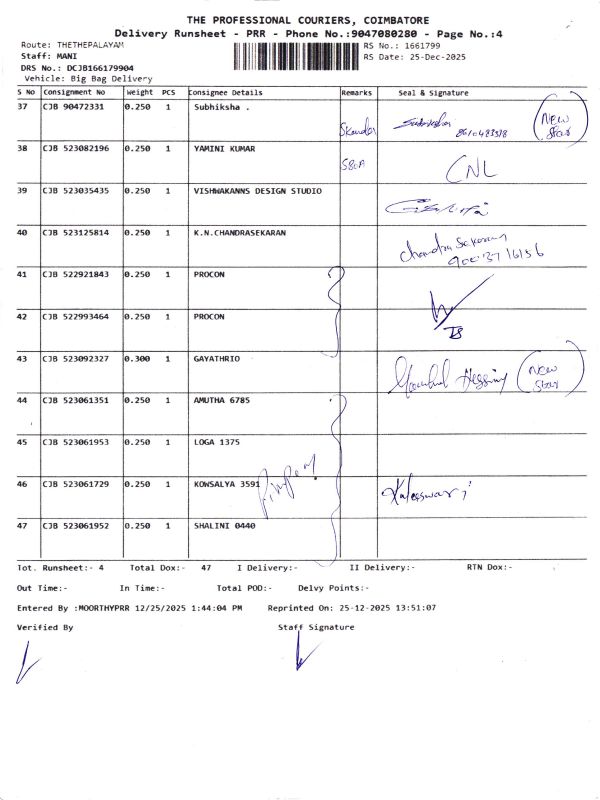 THE PROFESSIONAL COURIERS, COIMBATORE
Delivery Runsheet - PRR - Phone No.:9047080280 - Page No.:4
Route: THETHEPALAYAM
RS No.: 1661799
Staff: MANI
RS Date: 25-Dec-2025
DRS No.: DCJB166179904
Vehicle: Big Bag Delivery
S No Consignment No Weight PCS Consignee Details Remarks Seal & Signature
37 CJB 90472331 0.250 1 Subhiksha . (New Star)
38 CJB 523082196 0.250 1 YAMINI KUMAR CNL
39 CJB 523035435 0.250 1 VISHWAKANNS DESIGN STUDIO
40 CJB 523125814 0.250 1 K.N.CHANDRASEKARAN Chandra Sekaran
41 CJB 522921843 0.250 1 PROCON
42 CJB 522993464 0.250 1 PROCON
43 CJB 523092327 0.300 1 GAYATHRIO (New Star)
44 CJB 523061351 0.250 1 AMUTHA 6785
45 CJB 523061953 0.250 1 LOGA 1375
46 CJB 523061729 0.250 1 KOWSALYA 3591 Kaleeswari
47 CJB 523061952 0.250 1 SHALINI 0440
Tot. Runsheet:- 4 Total Dox:- 47 I Delivery:- II Delivery:- RTN Dox:-
Out Time:- In Time:- Total POD:- Delvy Points:-
Entered By :MOORTHYPRR 12/25/2025 1:44:04 PM Reprinted On: 25-12-2025 13:51:07
Verified By Staff Signature